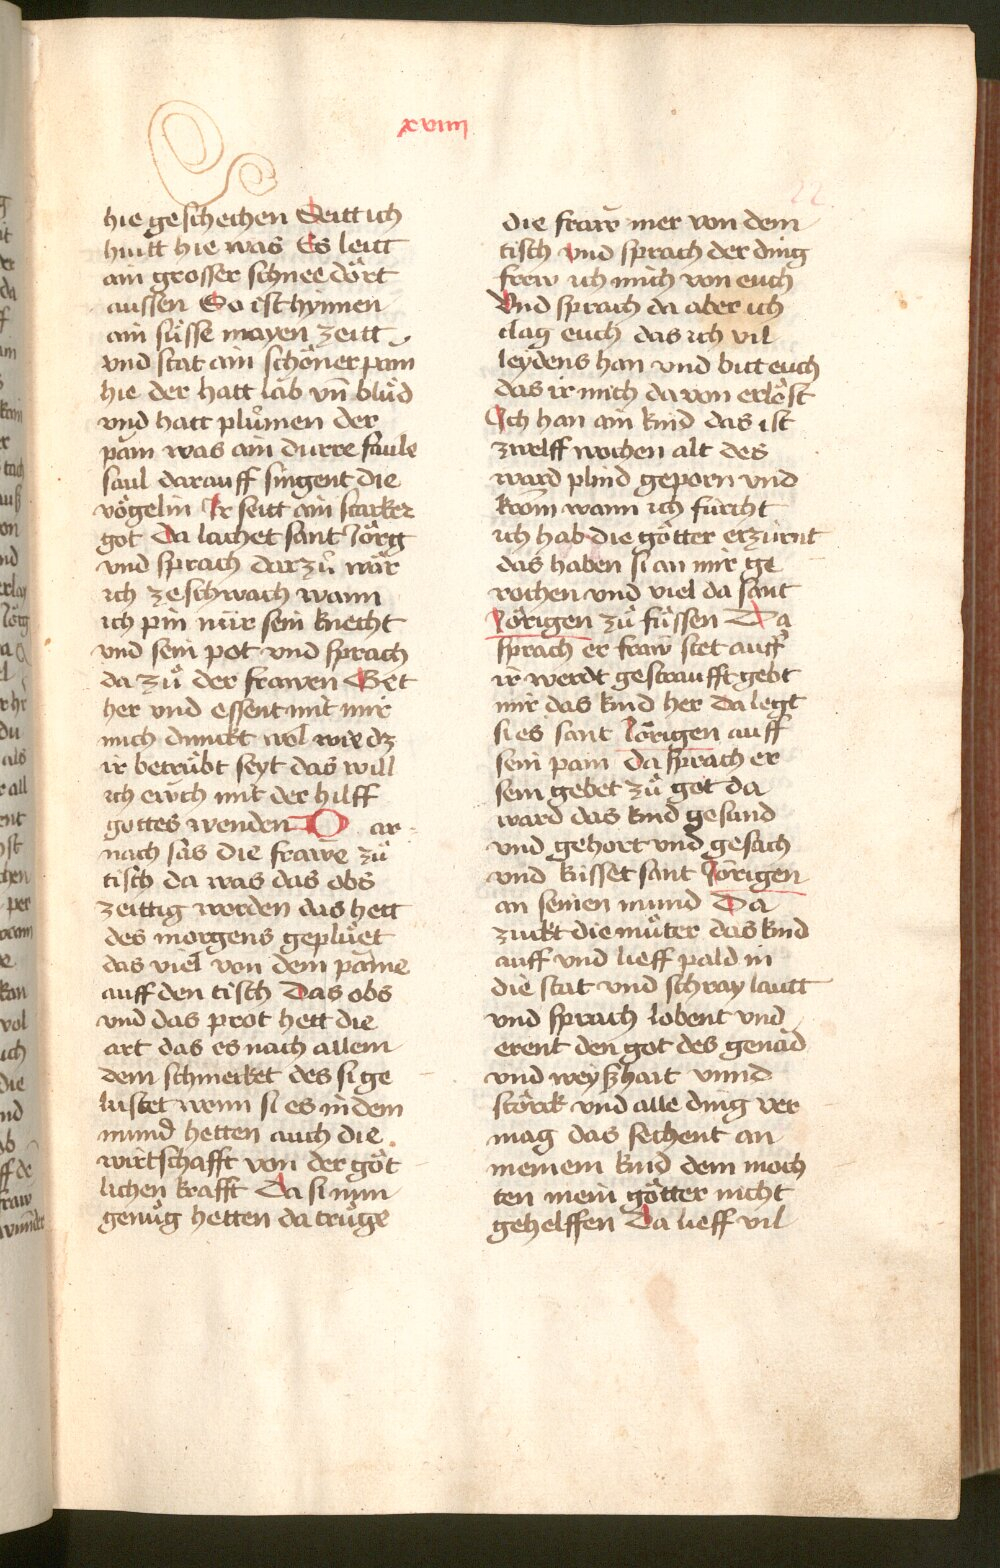 xviiii
hie geschechen Seitt ich
huitt hie was Es leitt
ain grosser schnee dört
aussen So ist hynnen
ain süsse mayen zeitt
vnd stat ain schöner pam
hie der hatt läb vn̄ blüd
vnd hatt plůmen der
päm was ain durre faule
saul darauff singent die
vögelin Ir seitt ain starker
got Da lachet sant Jörg
vnd sprach darzů wär
ich ze schwach wann
ich pin nür sein knecht
vnd sein pot vnd sprach
da zů der frawen Get
her vnd essent mit mir
mich dunckt wol wie dz
ir betrübt seyt das will
ich ewch mit der hilff
gottes wenden Dar
nach sas die frawe zů
tisch da was das obs
zeittig worden das hett
des morgens geplüet
das viel von dem pame
auff den tisch Das obs
vnd das prot hett die
art das es nach allem
dem schmecket des si ge
lustet wenn si es in dem
mund hetten auch die
wirtschafft von der göt
lichen krafft Da si nun
genůg hetten da trůge
die fraw mer von dem
tisch vnd sprach der ding
frew ich mich von euch
Vnd sprach da aber ich
clag euch das ich vil
leydens han vnd bitt euch
das ir mich da von erlöst
Ich han ain kind das ist
zwelff wochen alt des
ward plind geporn vnd
krom wann ich fürcht
ich hab die götter erzürnt
das haben si an mir ge
rochen vnd viel da sant
Jörigen zů füssen Da
sprach er fraw stet auff
ir werdt gestraufft gebt
mir das kind her Da legt
si es sant Jörigen auff
sein pain da sprach er
sein gebet zů got da
ward das kind gesund
vnd gehort vnd gesach
vnd küsset sant Jörigen
an seinen mund Da
zuckt die můter das kind
auff vnd lieff pald in
die stat vnd schray lautt
vnd sprach lobent vnd
erent den got des genäd
vnd weyßhait vnnd
störck vnd alle ding ver
mag das sechent an
meinem kind dem moch
ten mein götter nicht
gehelffen Da lieff vil